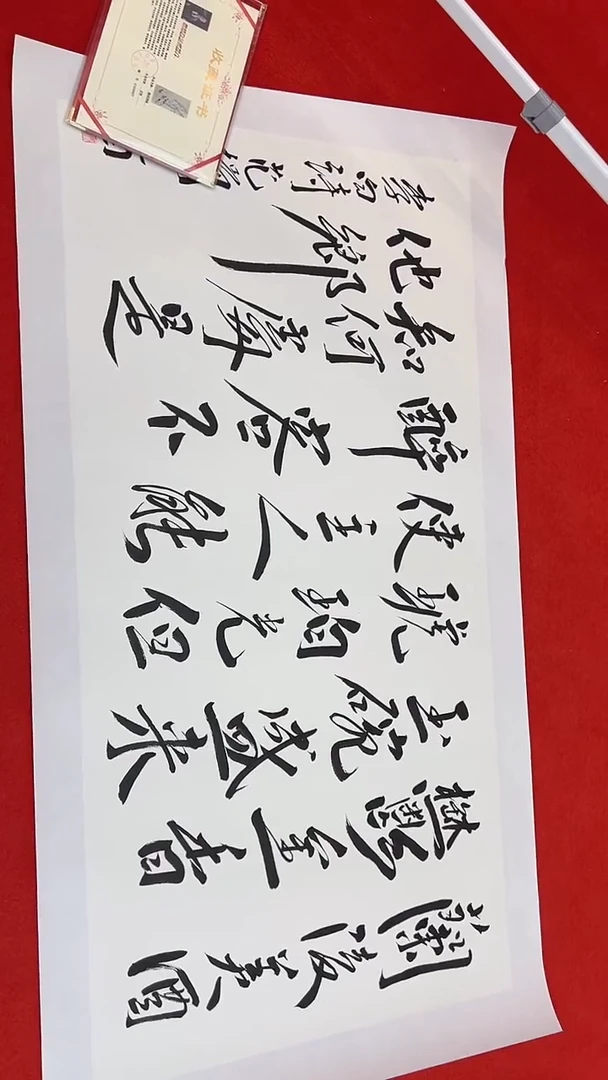 蘭陵美酒
鬱金香
玉碗盛来
琥珀光但
使主人能
醉客不
知何處是
他鄉
李白詩
收藏证书